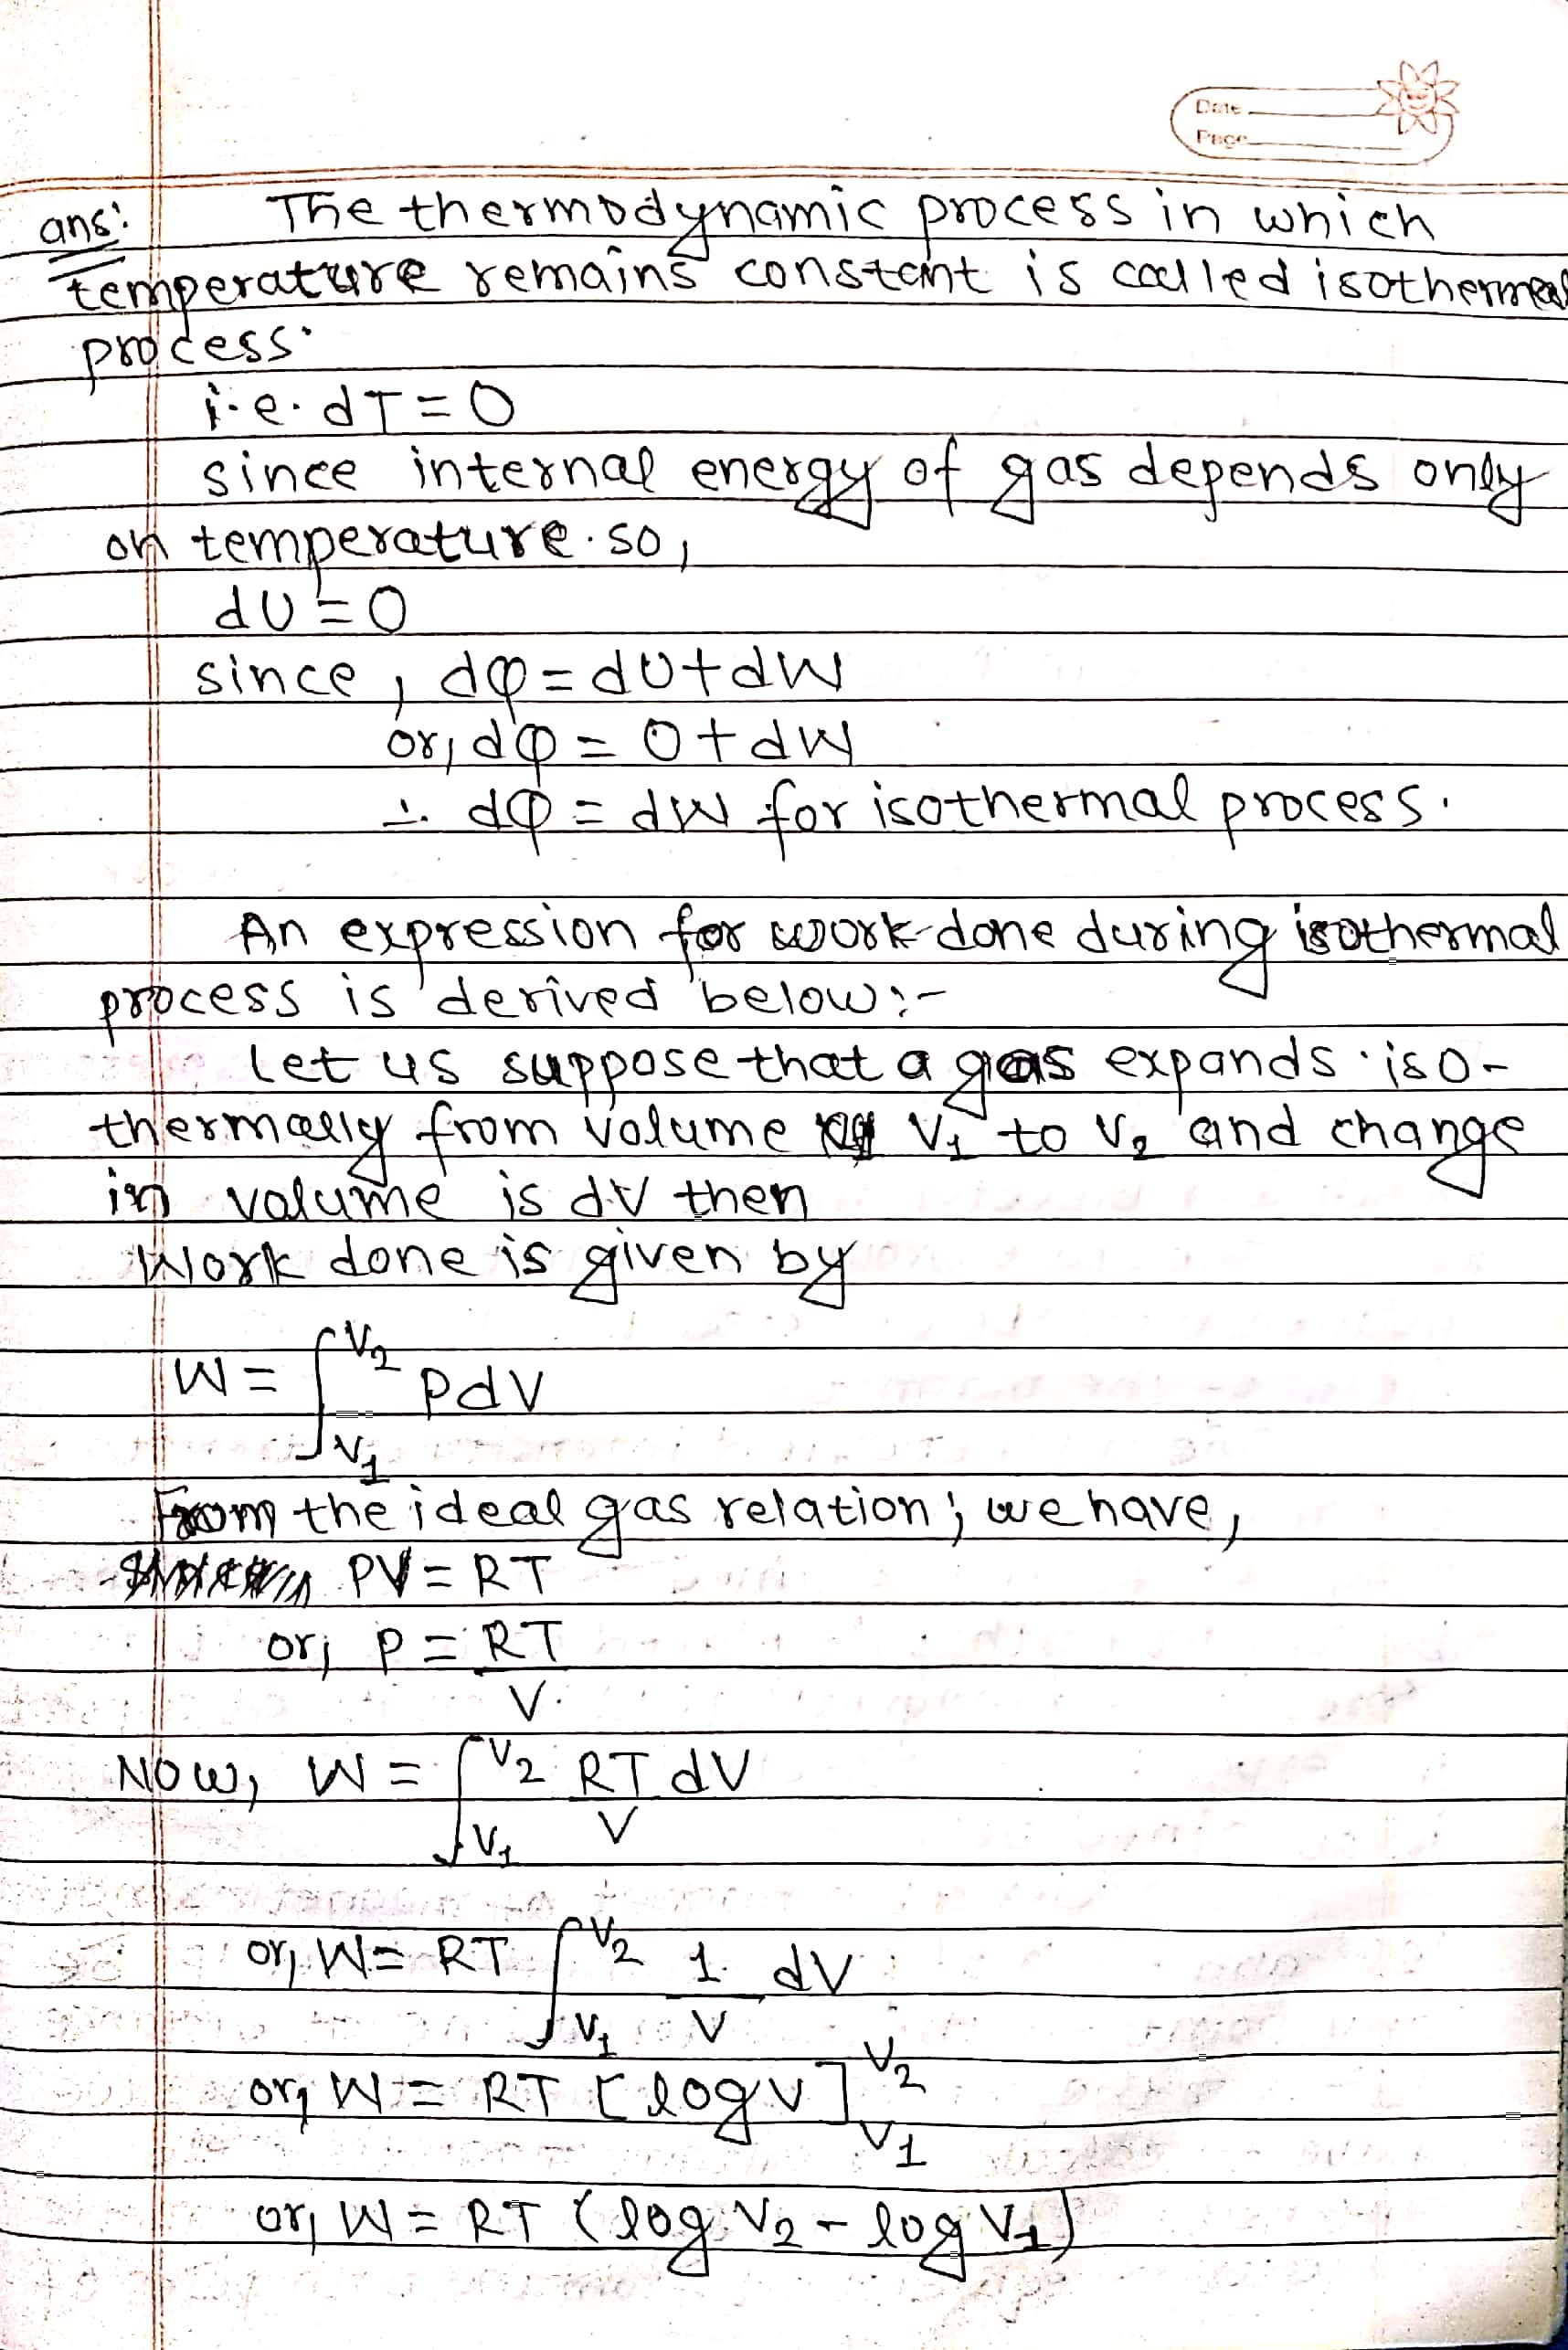 Date
Page
ans: The thermodynamic process in which
temperature remains constant is called isothermal
process.
i.e. dT = 0
since internal energy of gas depends only
on temperature. so,
dU = 0
since, dQ = dU + dW
or, dQ = 0 + dW
∴ dQ = dW for isothermal process.
An expression for work done during isothermal
process is derived below:-
Let us suppose that a gas expands iso-
thermally from volume V₁ to V₂ and change
in volume is dV then
Work done is given by
W = ∫_{V₁}^{V₂} PdV
From the ideal gas relation; we have,
PV = RT
or, P = RT/V.
Now, W = ∫_{V₁}^{V₂} RT/V dV
or, W = RT ∫_{V₁}^{V₂} 1/V dV
or, W = RT [log V]_{V₁}^{V₂}
or, W = RT (log V₂ - log V₁)